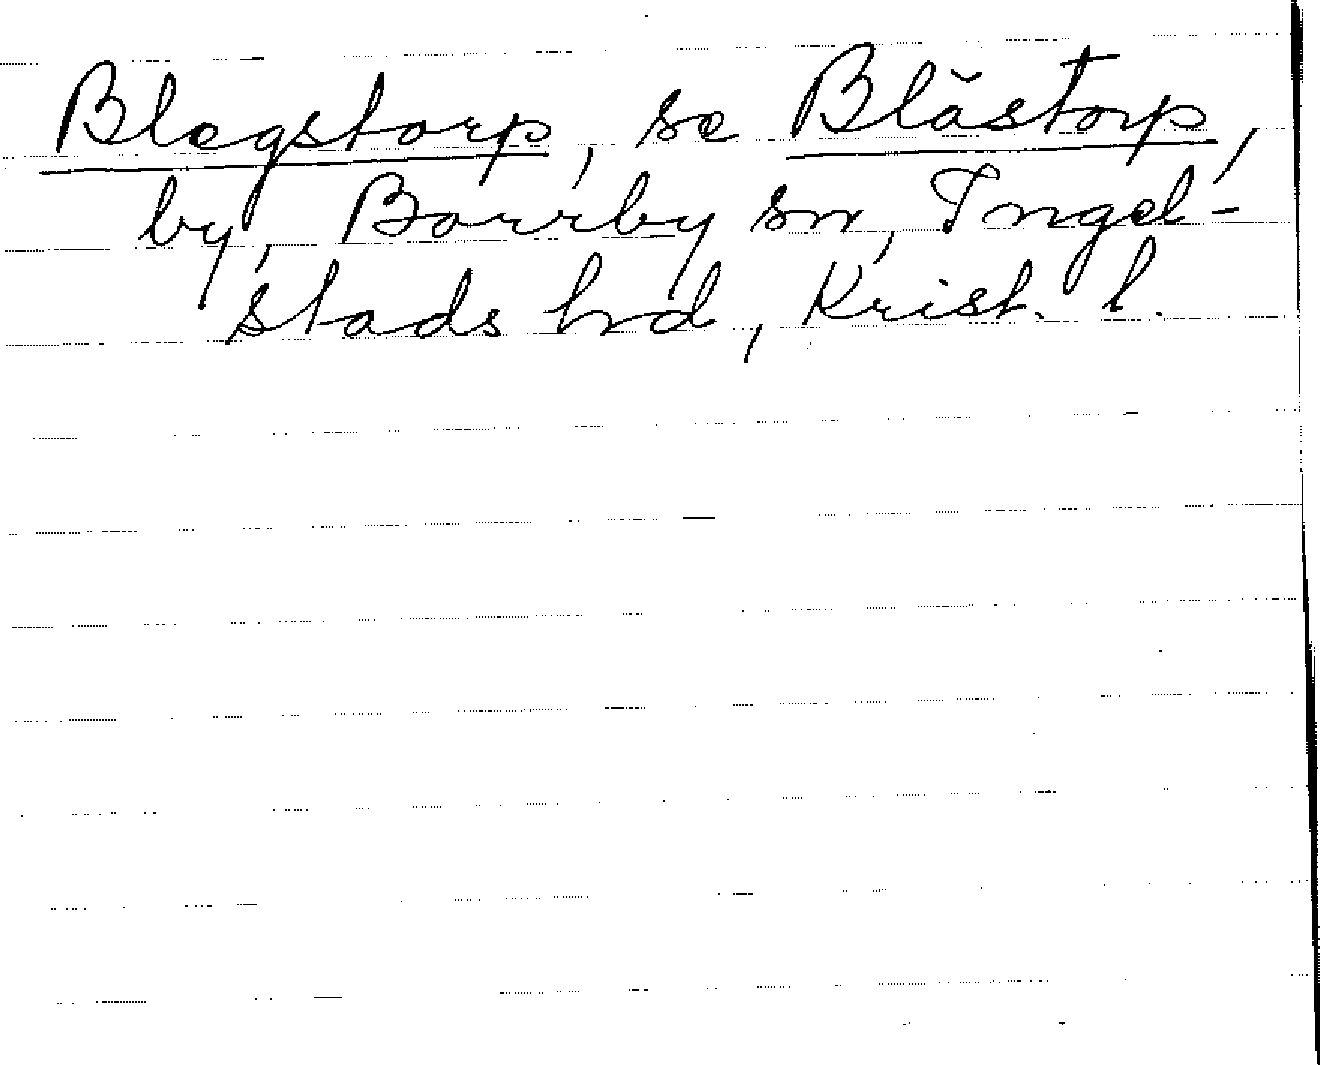 Blegstorp, se Blåstorp,
by, Borrby sn, Ingel-
stads hd, Krist. l.